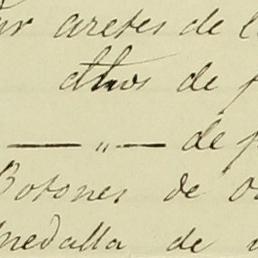 aretes de
dhos de
— " — de
Botones de
medalla de